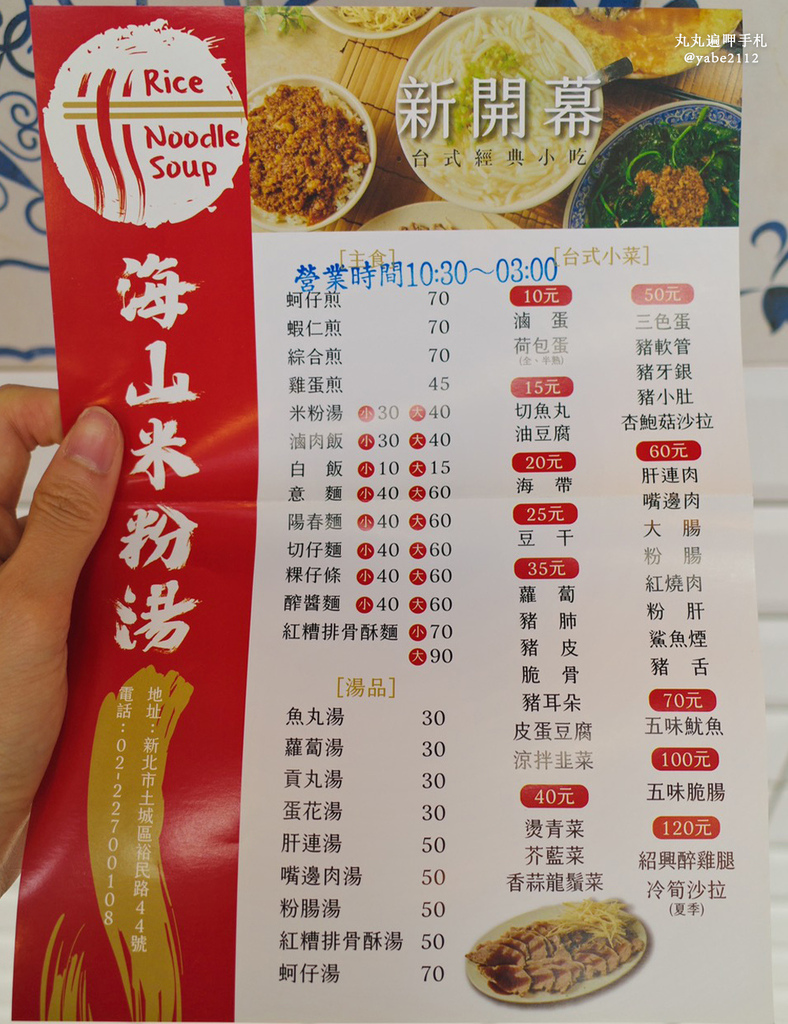 丸丸遍呷手札
@yabe2112
Rice
Noodle
Soup
海山米粉湯
地址：新北市土城區裕民路44號
電話：02-22700108
新開幕
台式經典小吃
[主食]
營業時間10:30～03:00
蚵仔煎 70
蝦仁煎 70
綜合煎 70
雞蛋煎 45
米粉湯 小30 大40
滷肉飯 小30 大40
白飯 小10 大15
意麵 小40 大60
陽春麵 小40 大60
切仔麵 小40 大60
粿仔條 小40 大60
醡醬麵 小40 大60
紅糟排骨酥麵 小70
大90
[湯品]
魚丸湯 30
蘿蔔湯 30
貢丸湯 30
蛋花湯 30
肝連湯 50
嘴邊肉湯 50
粉腸湯 50
紅糟排骨酥湯 50
蚵仔湯 70
[台式小菜]
10元
滷蛋
荷包蛋
(全、半熟)
15元
切魚丸
油豆腐
20元
海帶
25元
豆干
35元
蘿蔔
豬肺
豬皮
脆骨
豬耳朵
皮蛋豆腐
涼拌韭菜
40元
燙青菜
芥藍菜
香蒜龍鬚菜
50元
三色蛋
豬軟管
豬牙銀
豬小肚
杏鮑菇沙拉
60元
肝連肉
嘴邊肉
大腸
粉腸
紅燒肉
粉肝
鯊魚煙
豬舌
70元
五味魷魚
100元
五味脆腸
120元
紹興醉雞腿
冷筍沙拉
(夏季)